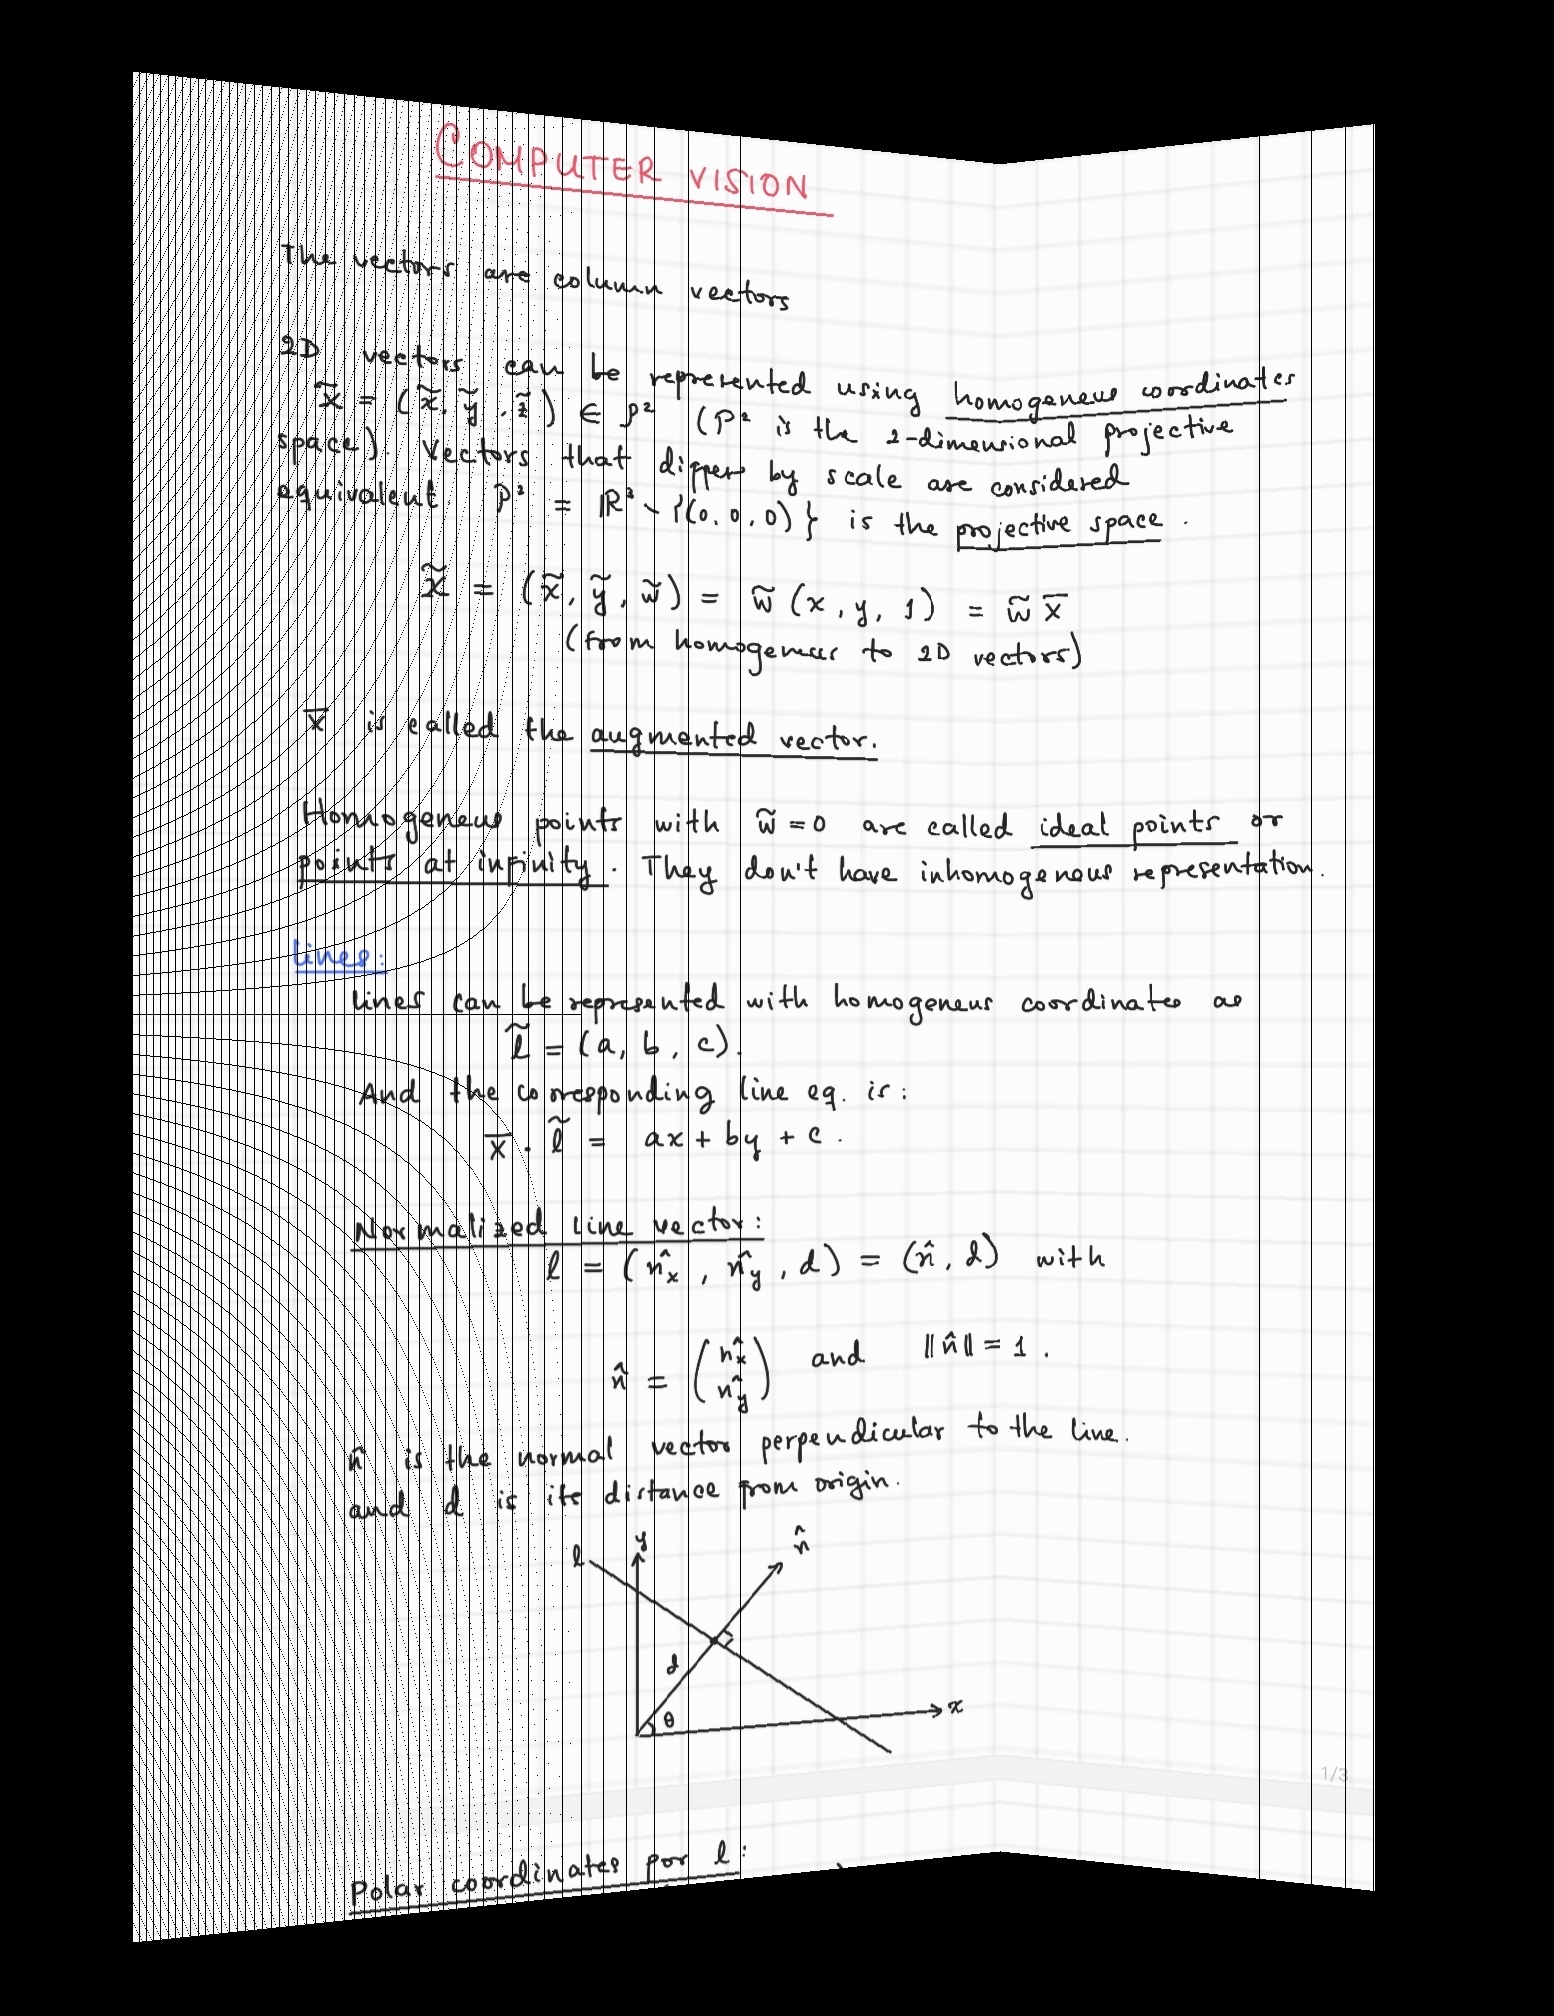 COMPUTER VISION
The vectors are column vectors
2D vectors can be represented using homogeneus coordinates
x̃ = (x̃, ỹ, z̃) ∈ P² (P² is the 2-dimensional projective
space). Vectors that differ by scale are considered
equivalent. P² = ℝ³ \ {(0,0,0)} is the projective space.
x̃ = (x̃, ỹ, w̃) = w̃ (x, y, 1) = w̃ x̄
(from homogeneus to 2D vectors)
x̄ is called the augmented vector.
Homogeneus points with w̃ = 0 are called ideal points or
points at infinity. They don't have inhomogenous representation.
lines:
lines can be represented with homogeneus coordinates as
l̃ = (a, b, c).
And the corresponding line eq. is:
x̄ · l̃ = ax + by + c.
Normalized line vector:
l = (n̂x, n̂y, d) = (n̂, d) with
n̂ = (n̂x n̂y) and ‖n̂‖ = 1.
n̂ is the normal vector perpendicular to the line.
and d is its distance from origin.
l y n̂
d
θ x
1/3
Polar coordinates for l: